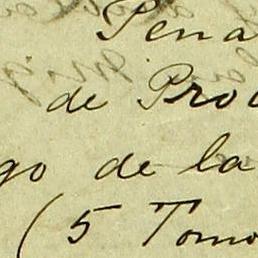 Pena
de Proc
go de la
( 5 Tomo